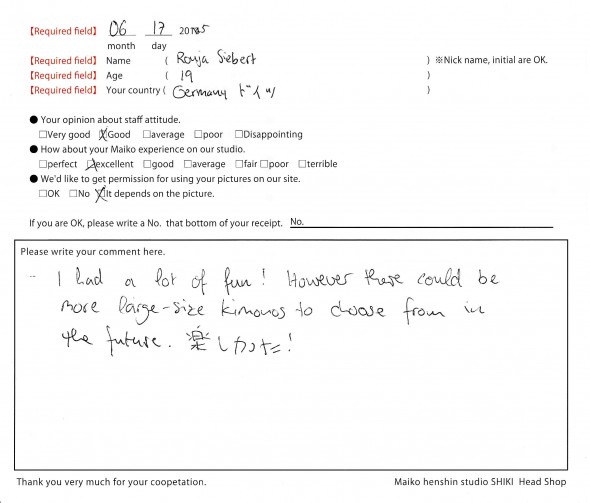 【Required field】 06 17 2015
month day
【Required field】 Name ( Ronja Siebert ) ※Nick name, initial are OK.
【Required field】 Age ( 19 )
【Required field】 Your country ( Germany ドイツ )
● Your opinion about staff attitude.
□Very good ☒Good □average □poor □Disappointing
● How about your Maiko experience on our studio.
□perfect ☒excellent □good □average □fair □poor □terrible
● We'd like to get permission for using your pictures on our site.
□OK □No ☒It depends on the picture.
If you are OK, please write a No. that bottom of your receipt. No.
Please write your comment here.
- I had a lot of fun! However there could be
more large-size kimonos to choose from in
the future. 楽しかった!
Thank you very much for your coopetation. Maiko henshin studio SHIKI Head Shop